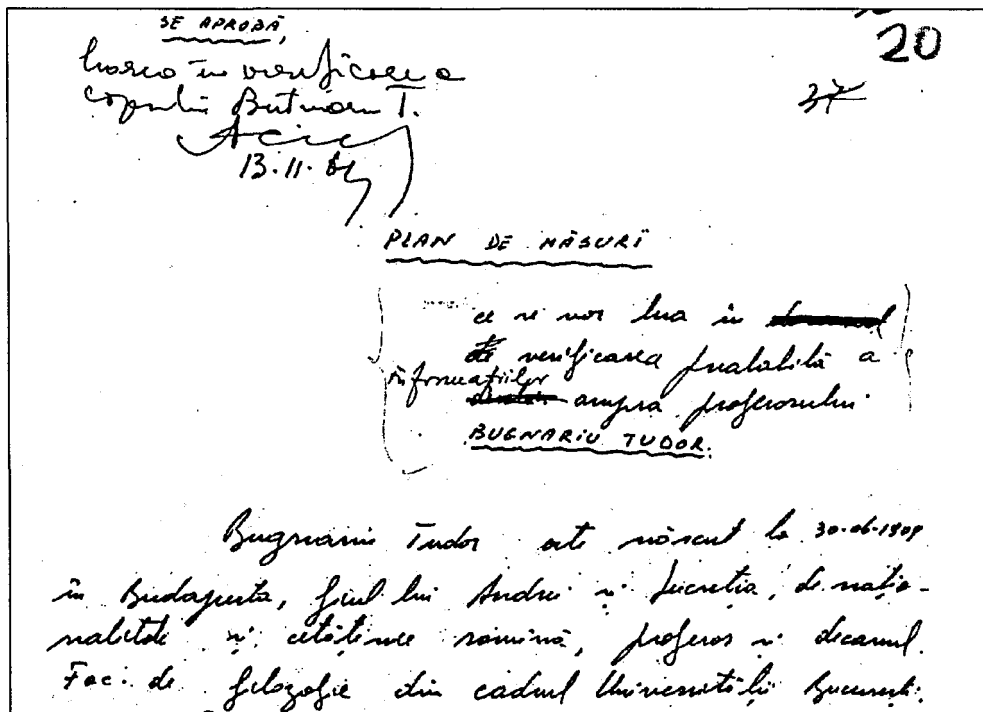 SE APROBĂ,
20
37
lucrea în verificarea
copului Butnaru T.
13.11.64
PLAN DE MĂSURI
ce se vor lua în
de verificarea prealabilă a
informațiilor
asupra profesorului
BUGNARIU TUDOR.
Bugnariu Tudor este născut la 30-06-1909
în Budapesta, fiul lui Andrei și Lucreția, de națio-
nalitate și cetățenie romînă, profesor și decanul
Fac. de filozofie din cadrul Universității București.